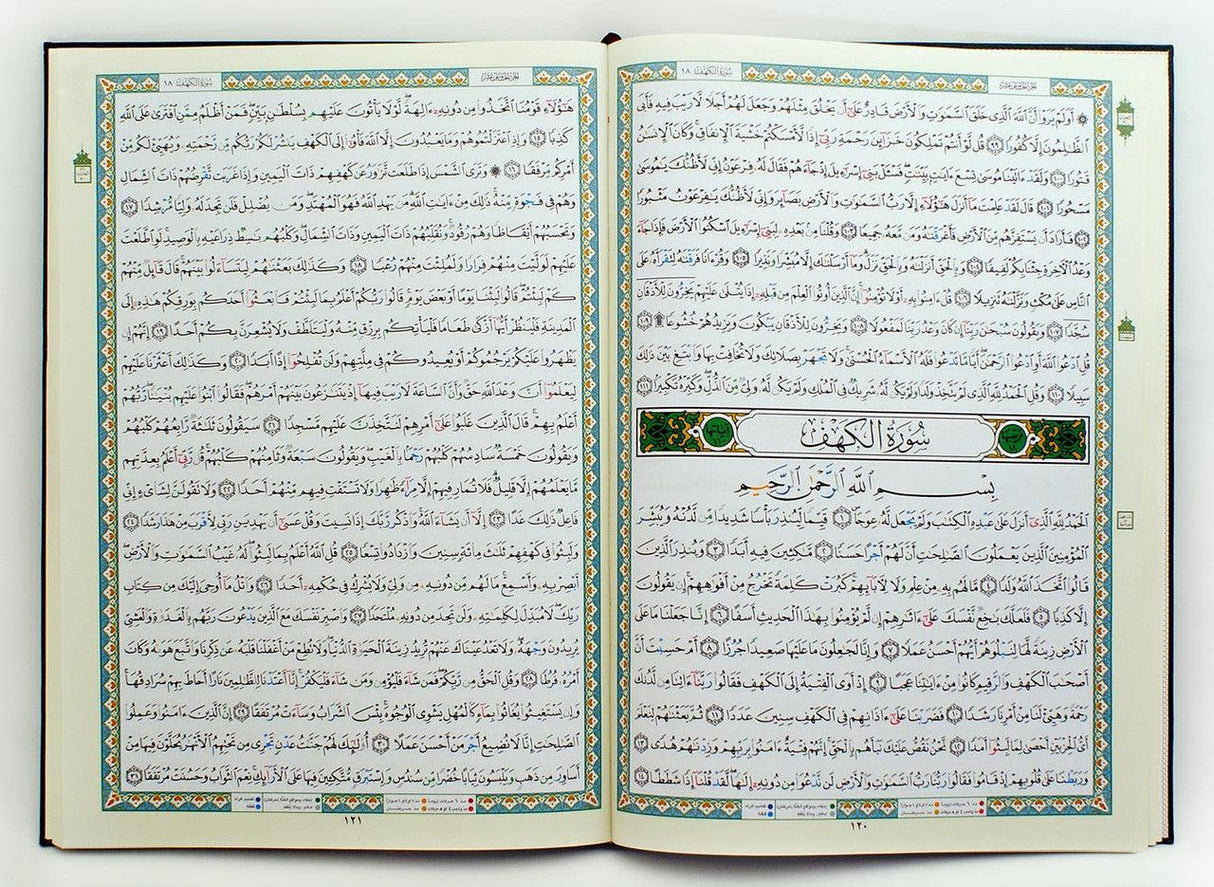 سُورَةُ الكَهْفِ ١٨
الجُزْءُ الخَامِسَ عَشَرَ
۞ أَوَلَمْ يَرَوْا أَنَّ ٱللَّهَ ٱلَّذِى خَلَقَ ٱلسَّمَٰوَٰتِ وَٱلْأَرْضَ قَادِرٌ عَلَىٰٓ أَن يَخْلُقَ مِثْلَهُمْ وَجَعَلَ لَهُمْ أَجَلًا لَّا رَيْبَ فِيهِ فَأَبَى
ٱلظَّٰلِمُونَ إِلَّا كُفُورًا ٩٩ قُل لَّوْ أَنتُمْ تَمْلِكُونَ خَزَآئِنَ رَحْمَةِ رَبِّىٓ إِذًا لَّأَمْسَكْتُمْ خَشْيَةَ ٱلْإِنفَاقِ وَكَانَ ٱلْإِنسَٰنُ
قَتُورًا ١٠٠ وَلَقَدْ ءَاتَيْنَا مُوسَىٰ تِسْعَ ءَايَٰتٍۭ بَيِّنَٰتٍ فَسْـَٔلْ بَنِىٓ إِسْرَٰٓءِيلَ إِذْ جَآءَهُمْ فَقَالَ لَهُۥ فِرْعَوْنُ إِنِّى لَأَظُنُّكَ يَٰمُوسَىٰ
مَسْحُورًا ١٠١ قَالَ لَقَدْ عَلِمْتَ مَآ أَنزَلَ هَٰٓؤُلَآءِ إِلَّا رَبُّ ٱلسَّمَٰوَٰتِ وَٱلْأَرْضِ بَصَآئِرَ وَإِنِّى لَأَظُنُّكَ يَٰفِرْعَوْنُ مَثْبُورًا
١٠٢ فَأَرَادَ أَن يَسْتَفِزَّهُم مِّنَ ٱلْأَرْضِ فَأَغْرَقْنَٰهُ وَمَن مَّعَهُۥ جَمِيعًا ١٠٣ وَقُلْنَا مِنۢ بَعْدِهِۦ لِبَنِىٓ إِسْرَٰٓءِيلَ ٱسْكُنُوا۟ ٱلْأَرْضَ فَإِذَا جَآءَ
وَعْدُ ٱلْءَاخِرَةِ جِئْنَا بِكُمْ لَفِيفًا ١٠٤ وَبِٱلْحَقِّ أَنزَلْنَٰهُ وَبِٱلْحَقِّ نَزَلَ وَمَآ أَرْسَلْنَٰكَ إِلَّا مُبَشِّرًا وَنَذِيرًا ١٠٥ وَقُرْءَانًا فَرَقْنَٰهُ لِتَقْرَأَهُۥ عَلَى
ٱلنَّاسِ عَلَىٰ مُكْثٍ وَنَزَّلْنَٰهُ تَنزِيلًا ١٠٦ قُلْ ءَامِنُوا۟ بِهِۦٓ أَوْ لَا تُؤْمِنُوٓا۟ إِنَّ ٱلَّذِينَ أُوتُوا۟ ٱلْعِلْمَ مِن قَبْلِهِۦٓ إِذَا يُتْلَىٰ عَلَيْهِمْ يَخِرُّونَ لِلْأَذْقَانِ
سُجَّدًا ١٠٧ وَيَقُولُونَ سُبْحَٰنَ رَبِّنَآ إِن كَانَ وَعْدُ رَبِّنَا لَمَفْعُولًا ١٠٨ وَيَخِرُّونَ لِلْأَذْقَانِ يَبْكُونَ وَيَزِيدُهُمْ خُشُوعًا ۩ ١٠٩
قُلِ ٱدْعُوا۟ ٱللَّهَ أَوِ ٱدْعُوا۟ ٱلرَّحْمَٰنَ أَيًّا مَّا تَدْعُوا۟ فَلَهُ ٱلْأَسْمَآءُ ٱلْحُسْنَىٰ وَلَا تَجْهَرْ بِصَلَاتِكَ وَلَا تُخَافِتْ بِهَا وَٱبْتَغِ بَيْنَ ذَٰلِكَ
سَبِيلًا ١١٠ وَقُلِ ٱلْحَمْدُ لِلَّهِ ٱلَّذِى لَمْ يَتَّخِذْ وَلَدًا وَلَمْ يَكُن لَّهُۥ شَرِيكٌ فِى ٱلْمُلْكِ وَلَمْ يَكُن لَّهُۥ وَلِىٌّ مِّنَ ٱلذُّلِّ وَكَبِّرْهُ تَكْبِيرًۢا ١١١
سُورَةُ الكَهْفِ
بِسْمِ ٱللَّهِ ٱلرَّحْمَٰنِ ٱلرَّحِيمِ
ٱلْحَمْدُ لِلَّهِ ٱلَّذِىٓ أَنزَلَ عَلَىٰ عَبْدِهِ ٱلْكِتَٰبَ وَلَمْ يَجْعَل لَّهُۥ عِوَجَا ١ قَيِّمًا لِّيُنذِرَ بَأْسًا شَدِيدًا مِّن لَّدُنْهُ وَيُبَشِّرَ
ٱلْمُؤْمِنِينَ ٱلَّذِينَ يَعْمَلُونَ ٱلصَّٰلِحَٰتِ أَنَّ لَهُمْ أَجْرًا حَسَنًا ٢ مَّٰكِثِينَ فِيهِ أَبَدًا ٣ وَيُنذِرَ ٱلَّذِينَ
قَالُوا۟ ٱتَّخَذَ ٱللَّهُ وَلَدًا ٤ مَّا لَهُم بِهِۦ مِنْ عِلْمٍ وَلَا لِءَابَآئِهِمْ كَبُرَتْ كَلِمَةً تَخْرُجُ مِنْ أَفْوَٰهِهِمْ إِن يَقُولُونَ
إِلَّا كَذِبًا ٥ فَلَعَلَّكَ بَٰخِعٌ نَّفْسَكَ عَلَىٰٓ ءَاثَٰرِهِمْ إِن لَّمْ يُؤْمِنُوا۟ بِهَٰذَا ٱلْحَدِيثِ أَسَفًا ٦ إِنَّا جَعَلْنَا مَا عَلَى
ٱلْأَرْضِ زِينَةً لَّهَا لِنَبْلُوَهُمْ أَيُّهُمْ أَحْسَنُ عَمَلًا ٧ وَإِنَّا لَجَٰعِلُونَ مَا عَلَيْهَا صَعِيدًا جُرُزًا ٨ أَمْ حَسِبْتَ أَنَّ
أَصْحَٰبَ ٱلْكَهْفِ وَٱلرَّقِيمِ كَانُوا۟ مِنْ ءَايَٰتِنَا عَجَبًا ٩ إِذْ أَوَى ٱلْفِتْيَةُ إِلَى ٱلْكَهْفِ فَقَالُوا۟ رَبَّنَآ ءَاتِنَا مِن لَّدُنكَ
رَحْمَةً وَهَيِّئْ لَنَا مِنْ أَمْرِنَا رَشَدًا ١٠ فَضَرَبْنَا عَلَىٰٓ ءَاذَانِهِمْ فِى ٱلْكَهْفِ سِنِينَ عَدَدًا ١١ ثُمَّ بَعَثْنَٰهُمْ لِنَعْلَمَ
أَىُّ ٱلْحِزْبَيْنِ أَحْصَىٰ لِمَا لَبِثُوٓا۟ أَمَدًا ١٢ نَّحْنُ نَقُصُّ عَلَيْكَ نَبَأَهُم بِٱلْحَقِّ إِنَّهُمْ فِتْيَةٌ ءَامَنُوا۟ بِرَبِّهِمْ وَزِدْنَٰهُمْ هُدًى ١٣
وَرَبَطْنَا عَلَىٰ قُلُوبِهِمْ إِذْ قَامُوا۟ فَقَالُوا۟ رَبُّنَا رَبُّ ٱلسَّمَٰوَٰتِ وَٱلْأَرْضِ لَن نَّدْعُوَا۟ مِن دُونِهِۦٓ إِلَٰهًا لَّقَدْ قُلْنَآ إِذًا شَطَطًا ١٤
١٢٠
سُورَةُ الكَهْفِ ١٨
الجُزْءُ الخَامِسَ عَشَرَ
هَٰٓؤُلَآءِ قَوْمُنَا ٱتَّخَذُوا۟ مِن دُونِهِۦٓ ءَالِهَةً لَّوْلَا يَأْتُونَ عَلَيْهِم بِسُلْطَٰنٍۭ بَيِّنٍ فَمَنْ أَظْلَمُ مِمَّنِ ٱفْتَرَىٰ عَلَى ٱللَّهِ
كَذِبًا ١٥ وَإِذِ ٱعْتَزَلْتُمُوهُمْ وَمَا يَعْبُدُونَ إِلَّا ٱللَّهَ فَأْوُۥٓا۟ إِلَى ٱلْكَهْفِ يَنشُرْ لَكُمْ رَبُّكُم مِّن رَّحْمَتِهِۦ وَيُهَيِّئْ لَكُم مِّنْ
أَمْرِكُم مِّرْفَقًا ١٦ ۞ وَتَرَى ٱلشَّمْسَ إِذَا طَلَعَت تَّزَٰوَرُ عَن كَهْفِهِمْ ذَاتَ ٱلْيَمِينِ وَإِذَا غَرَبَت تَّقْرِضُهُمْ ذَاتَ ٱلشِّمَالِ
وَهُمْ فِى فَجْوَةٍ مِّنْهُ ذَٰلِكَ مِنْ ءَايَٰتِ ٱللَّهِ مَن يَهْدِ ٱللَّهُ فَهُوَ ٱلْمُهْتَدِ وَمَن يُضْلِلْ فَلَن تَجِدَ لَهُۥ وَلِيًّا مُّرْشِدًا ١٧
وَتَحْسَبُهُمْ أَيْقَاظًا وَهُمْ رُقُودٌ وَنُقَلِّبُهُمْ ذَاتَ ٱلْيَمِينِ وَذَاتَ ٱلشِّمَالِ وَكَلْبُهُم بَٰسِطٌ ذِرَاعَيْهِ بِٱلْوَصِيدِ لَوِ ٱطَّلَعْتَ
عَلَيْهِمْ لَوَلَّيْتَ مِنْهُمْ فِرَارًا وَلَمُلِئْتَ مِنْهُمْ رُعْبًا ١٨ وَكَذَٰلِكَ بَعَثْنَٰهُمْ لِيَتَسَآءَلُوا۟ بَيْنَهُمْ قَالَ قَآئِلٌ مِّنْهُمْ
كَمْ لَبِثْتُمْ قَالُوا۟ لَبِثْنَا يَوْمًا أَوْ بَعْضَ يَوْمٍ قَالُوا۟ رَبُّكُمْ أَعْلَمُ بِمَا لَبِثْتُمْ فَٱبْعَثُوٓا۟ أَحَدَكُم بِوَرِقِكُمْ هَٰذِهِۦٓ إِلَى
ٱلْمَدِينَةِ فَلْيَنظُرْ أَيُّهَآ أَزْكَىٰ طَعَامًا فَلْيَأْتِكُم بِرِزْقٍ مِّنْهُ وَلْيَتَلَطَّفْ وَلَا يُشْعِرَنَّ بِكُمْ أَحَدًا ١٩ إِنَّهُمْ إِن
يَظْهَرُوا۟ عَلَيْكُمْ يَرْجُمُوكُمْ أَوْ يُعِيدُوكُمْ فِى مِلَّتِهِمْ وَلَن تُفْلِحُوٓا۟ إِذًا أَبَدًا ٢٠ وَكَذَٰلِكَ أَعْثَرْنَا عَلَيْهِمْ
لِيَعْلَمُوٓا۟ أَنَّ وَعْدَ ٱللَّهِ حَقٌّ وَأَنَّ ٱلسَّاعَةَ لَا رَيْبَ فِيهَآ إِذْ يَتَنَٰزَعُونَ بَيْنَهُمْ أَمْرَهُمْ فَقَالُوا۟ ٱبْنُوا۟ عَلَيْهِم بُنْيَٰنًا رَّبُّهُمْ
أَعْلَمُ بِهِمْ قَالَ ٱلَّذِينَ غَلَبُوا۟ عَلَىٰٓ أَمْرِهِمْ لَنَتَّخِذَنَّ عَلَيْهِم مَّسْجِدًا ٢١ سَيَقُولُونَ ثَلَٰثَةٌ رَّابِعُهُمْ كَلْبُهُمْ
وَيَقُولُونَ خَمْسَةٌ سَادِسُهُمْ كَلْبُهُمْ رَجْمًۢا بِٱلْغَيْبِ وَيَقُولُونَ سَبْعَةٌ وَثَامِنُهُمْ كَلْبُهُمْ قُل رَّبِّىٓ أَعْلَمُ بِعِدَّتِهِم
مَّا يَعْلَمُهُمْ إِلَّا قَلِيلٌ فَلَا تُمَارِ فِيهِمْ إِلَّا مِرَآءً ظَٰهِرًا وَلَا تَسْتَفْتِ فِيهِم مِّنْهُمْ أَحَدًا ٢٢ وَلَا تَقُولَنَّ لِشَا۟ىْءٍ إِنِّى
فَاعِلٌ ذَٰلِكَ غَدًا ٢٣ إِلَّآ أَن يَشَآءَ ٱللَّهُ وَٱذْكُر رَّبَّكَ إِذَا نَسِيتَ وَقُلْ عَسَىٰٓ أَن يَهْدِيَنِ رَبِّى لِأَقْرَبَ مِنْ هَٰذَا رَشَدًا ٢٤
وَلَبِثُوا۟ فِى كَهْفِهِمْ ثَلَٰثَ مِا۟ئَةٍ سِنِينَ وَٱزْدَادُوا۟ تِسْعًا ٢٥ قُلِ ٱللَّهُ أَعْلَمُ بِمَا لَبِثُوا۟ لَهُۥ غَيْبُ ٱلسَّمَٰوَٰتِ وَٱلْأَرْضِ
أَبْصِرْ بِهِۦ وَأَسْمِعْ مَا لَهُم مِّن دُونِهِۦ مِن وَلِىٍّ وَلَا يُشْرِكُ فِى حُكْمِهِۦٓ أَحَدًا ٢٦ وَٱتْلُ مَآ أُوحِىَ إِلَيْكَ مِن كِتَابِ
رَبِّكَ لَا مُبَدِّلَ لِكَلِمَٰتِهِۦ وَلَن تَجِدَ مِن دُونِهِۦ مُلْتَحَدًا ٢٧ وَٱصْبِرْ نَفْسَكَ مَعَ ٱلَّذِينَ يَدْعُونَ رَبَّهُم بِٱلْغَدَوٰةِ وَٱلْعَشِىِّ
يُرِيدُونَ وَجْهَهُۥ وَلَا تَعْدُ عَيْنَاكَ عَنْهُمْ تُرِيدُ زِينَةَ ٱلْحَيَوٰةِ ٱلدُّنْيَا وَلَا تُطِعْ مَنْ أَغْفَلْنَا قَلْبَهُۥ عَن ذِكْرِنَا وَٱتَّبَعَ هَوَىٰهُ وَكَانَ
أَمْرُهُۥ فُرُطًا ٢٨ وَقُلِ ٱلْحَقُّ مِن رَّبِّكُمْ فَمَن شَآءَ فَلْيُؤْمِن وَمَن شَآءَ فَلْيَكْفُرْ إِنَّآ أَعْتَدْنَا لِلظَّٰلِمِينَ نَارًا أَحَاطَ بِهِمْ سُرَادِقُهَا
وَإِن يَسْتَغِيثُوا۟ يُغَاثُوا۟ بِمَآءٍ كَٱلْمُهْلِ يَشْوِى ٱلْوُجُوهَ بِئْسَ ٱلشَّرَابُ وَسَآءَتْ مُرْتَفَقًا ٢٩ إِنَّ ٱلَّذِينَ ءَامَنُوا۟ وَعَمِلُوا۟
ٱلصَّٰلِحَٰتِ إِنَّا لَا نُضِيعُ أَجْرَ مَنْ أَحْسَنَ عَمَلًا ٣٠ أُو۟لَٰٓئِكَ لَهُمْ جَنَّٰتُ عَدْنٍ تَجْرِى مِن تَحْتِهِمُ ٱلْأَنْهَٰرُ يُحَلَّوْنَ فِيهَا مِنْ
أَسَاوِرَ مِن ذَهَبٍ وَيَلْبَسُونَ ثِيَابًا خُضْرًا مِّن سُندُسٍ وَإِسْتَبْرَقٍ مُّتَّكِـِٔينَ فِيهَا عَلَى ٱلْأَرَآئِكِ نِعْمَ ٱلثَّوَابُ وَحَسُنَتْ مُرْتَفَقًا ٣١
١٢١